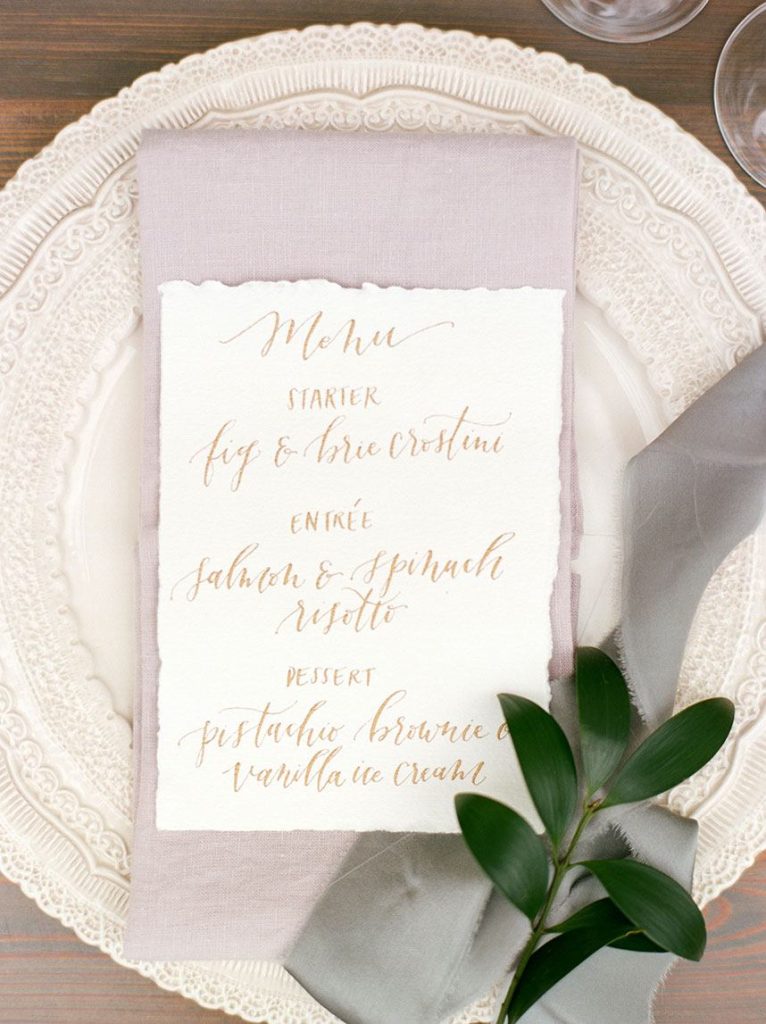 Menu
STARTER
fig & brie crostini
ENTRÉE
salmon & spinach
risotto
DESSERT
pistachio brownie
vanilla ice cream